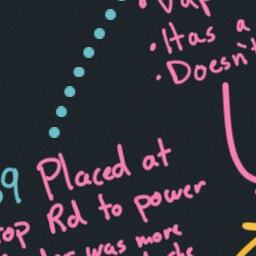 • Vap
• Has a
• Doesn't
39 Placed at
rop Rd to power
was more